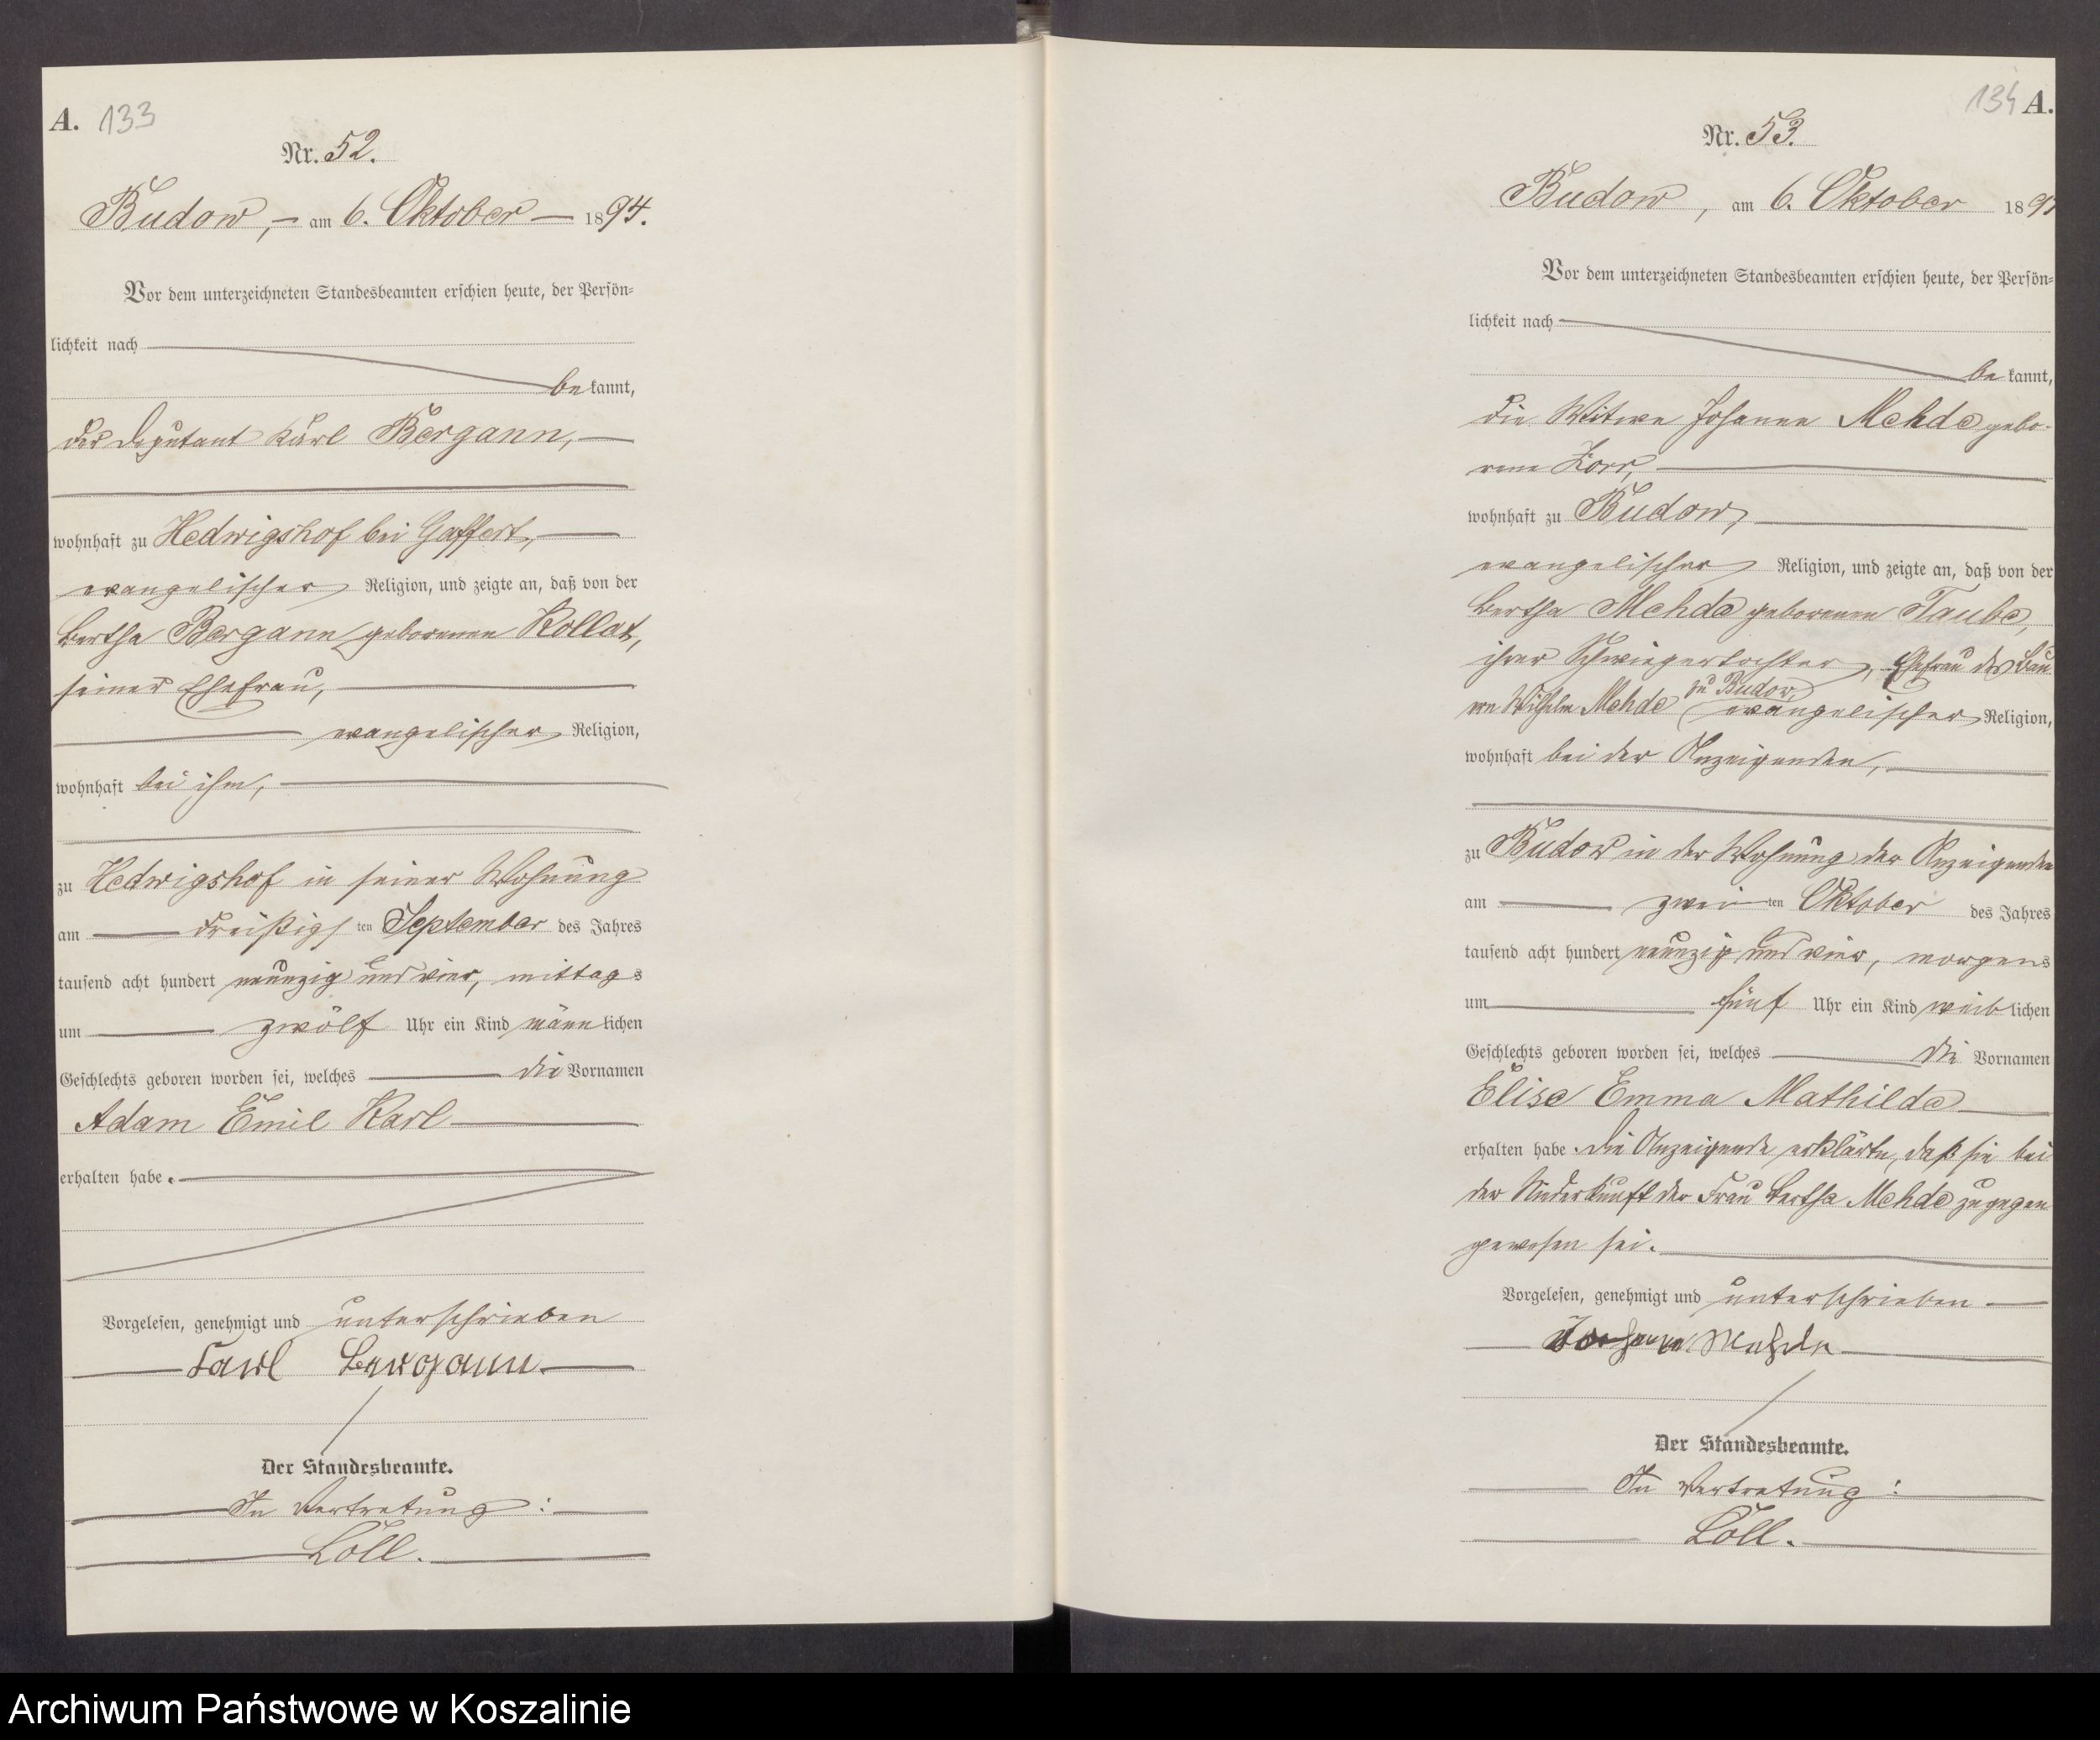 A. 133
Nr. 52.
Budow, am 6. Oktober 1894.
Vor dem unterzeichneten Standesbeamten erschien heute, der Persön-
lichkeit nach
bekannt,
der Deputant Karl Bergann,
wohnhaft zu Hedwigshof bei Gaffert,
evangelischer Religion, und zeigte an, daß von der
Bertha Bergann geborenen Kollat,
seiner Ehefrau,
evangelischer Religion,
wohnhaft bei ihm,
zu Hedwigshof in seiner Wohnung
am dreißigsten September des Jahres
tausend acht hundert neunzig und vier, mittags
um zwölf Uhr ein Kind männlichen
Geschlechts geboren worden sei, welches die Vornamen
Adam Emil Karl
erhalten habe.
Vorgelesen, genehmigt und unterschrieben
Karl Bergann
Der Standesbeamte.
In Vertretung:
Löll.
134 A.
Nr. 53.
Budow, am 6. Oktober 189
Vor dem unterzeichneten Standesbeamten erschien heute, der Persön-
lichkeit nach
bekannt,
die Witwe Johanne Mehde gebo-
rene
wohnhaft zu Budow,
evangelischer Religion, und zeigte an, daß von der
Bertha Mehde geborenen Taube,
ihrer Schwiegertochter, Ehefrau des Bau
ern Wilhelm Mehde zu Budow, evangelischer Religion,
wohnhaft bei der Anzeigenden,
zu Budow in der Wohnung der Anzeigenden
am zweiten Oktober des Jahres
tausend acht hundert neunzig und vier, morgens
um fünf Uhr ein Kind weiblichen
Geschlechts geboren worden sei, welches die Vornamen
Elise Emma Mathilde
erhalten habe. Die Anzeigende erklärte, daß sie bei
der Niederkunft der Frau Bertha Mehde zugegen
gewesen sei.
Vorgelesen, genehmigt und unterschrieben
Johanne Mehde
Der Standesbeamte.
In Vertretung:
Löll.
Archiwum Państwowe w Koszalinie